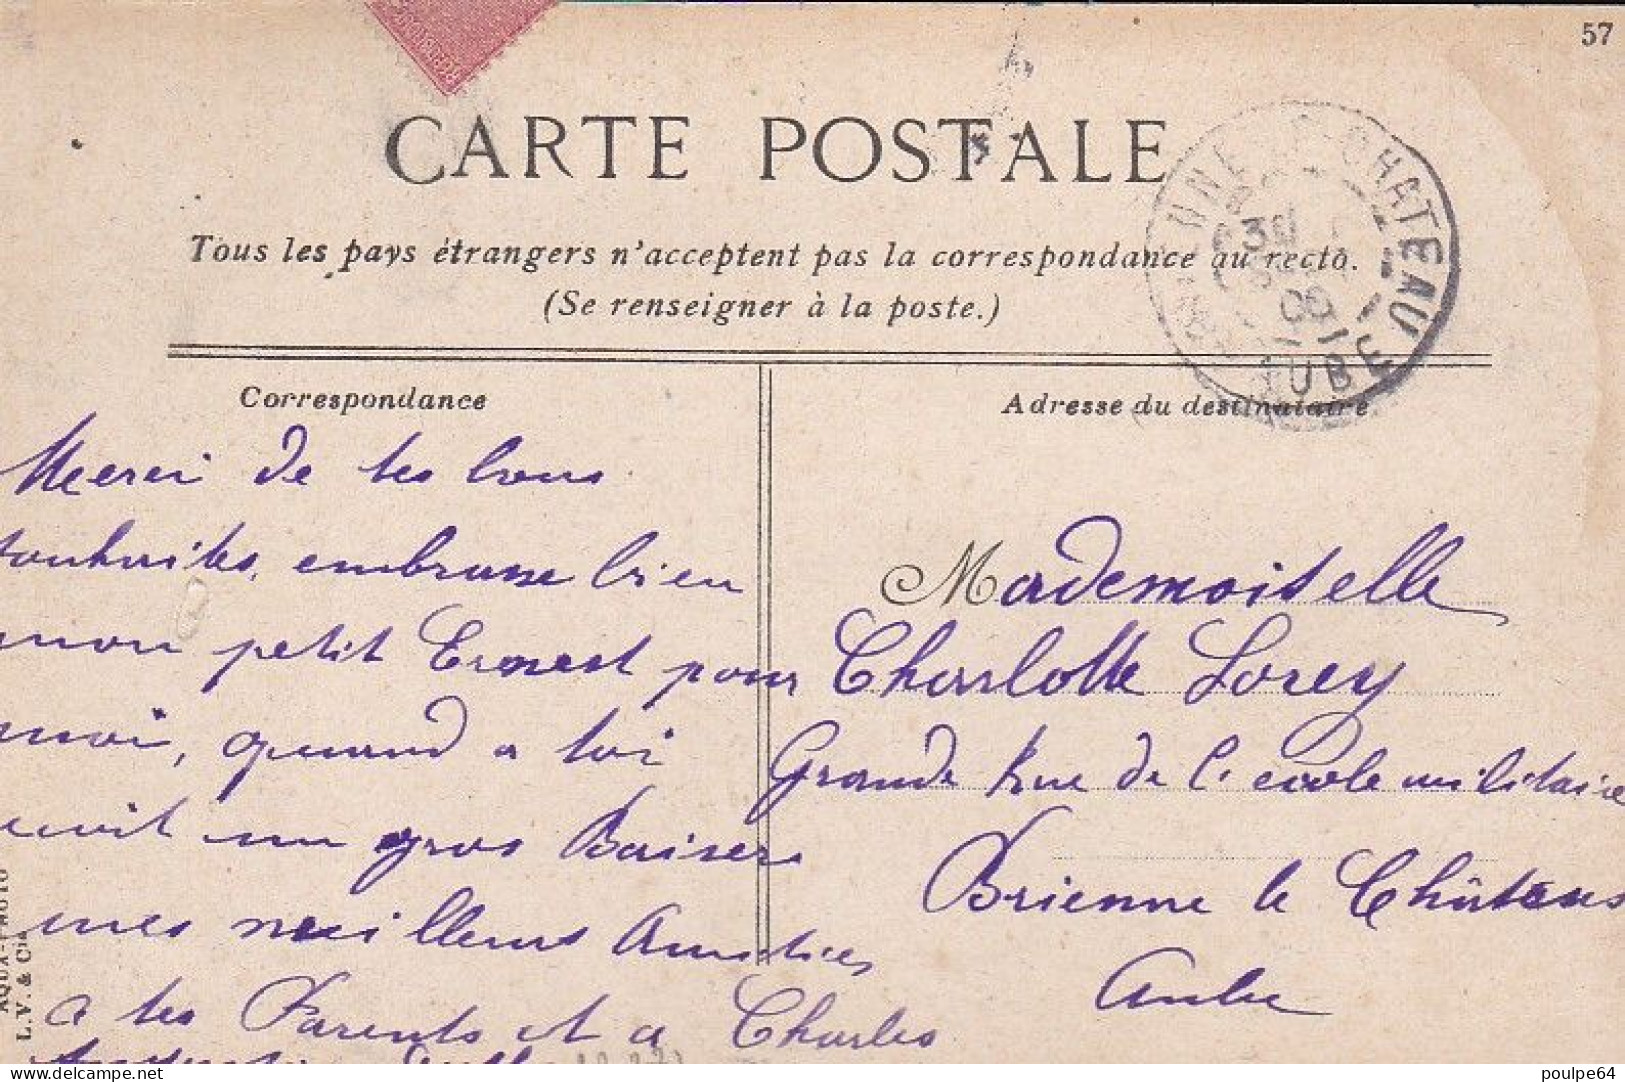 57
CARTE POSTALE
Tous les pays étrangers n'acceptent pas la correspondance au recto.
(Se renseigner à la poste.)
Correspondance
Merci de tes bons
souhaites, embrasse bien
mon petit Ernest pour
moi, quand a toi
un gros Baisers
mes meilleurs Amities
a tes Parents et a Charles
Adresse du destinataire
Mademoiselle
Charlotte Lorey
Grande Rue de l'école militaire
Brienne le Château
Aube
CHATEAU
AUBE
AQUA-PHOTO
L.V. & Cie
delcampe.net
poulpe64